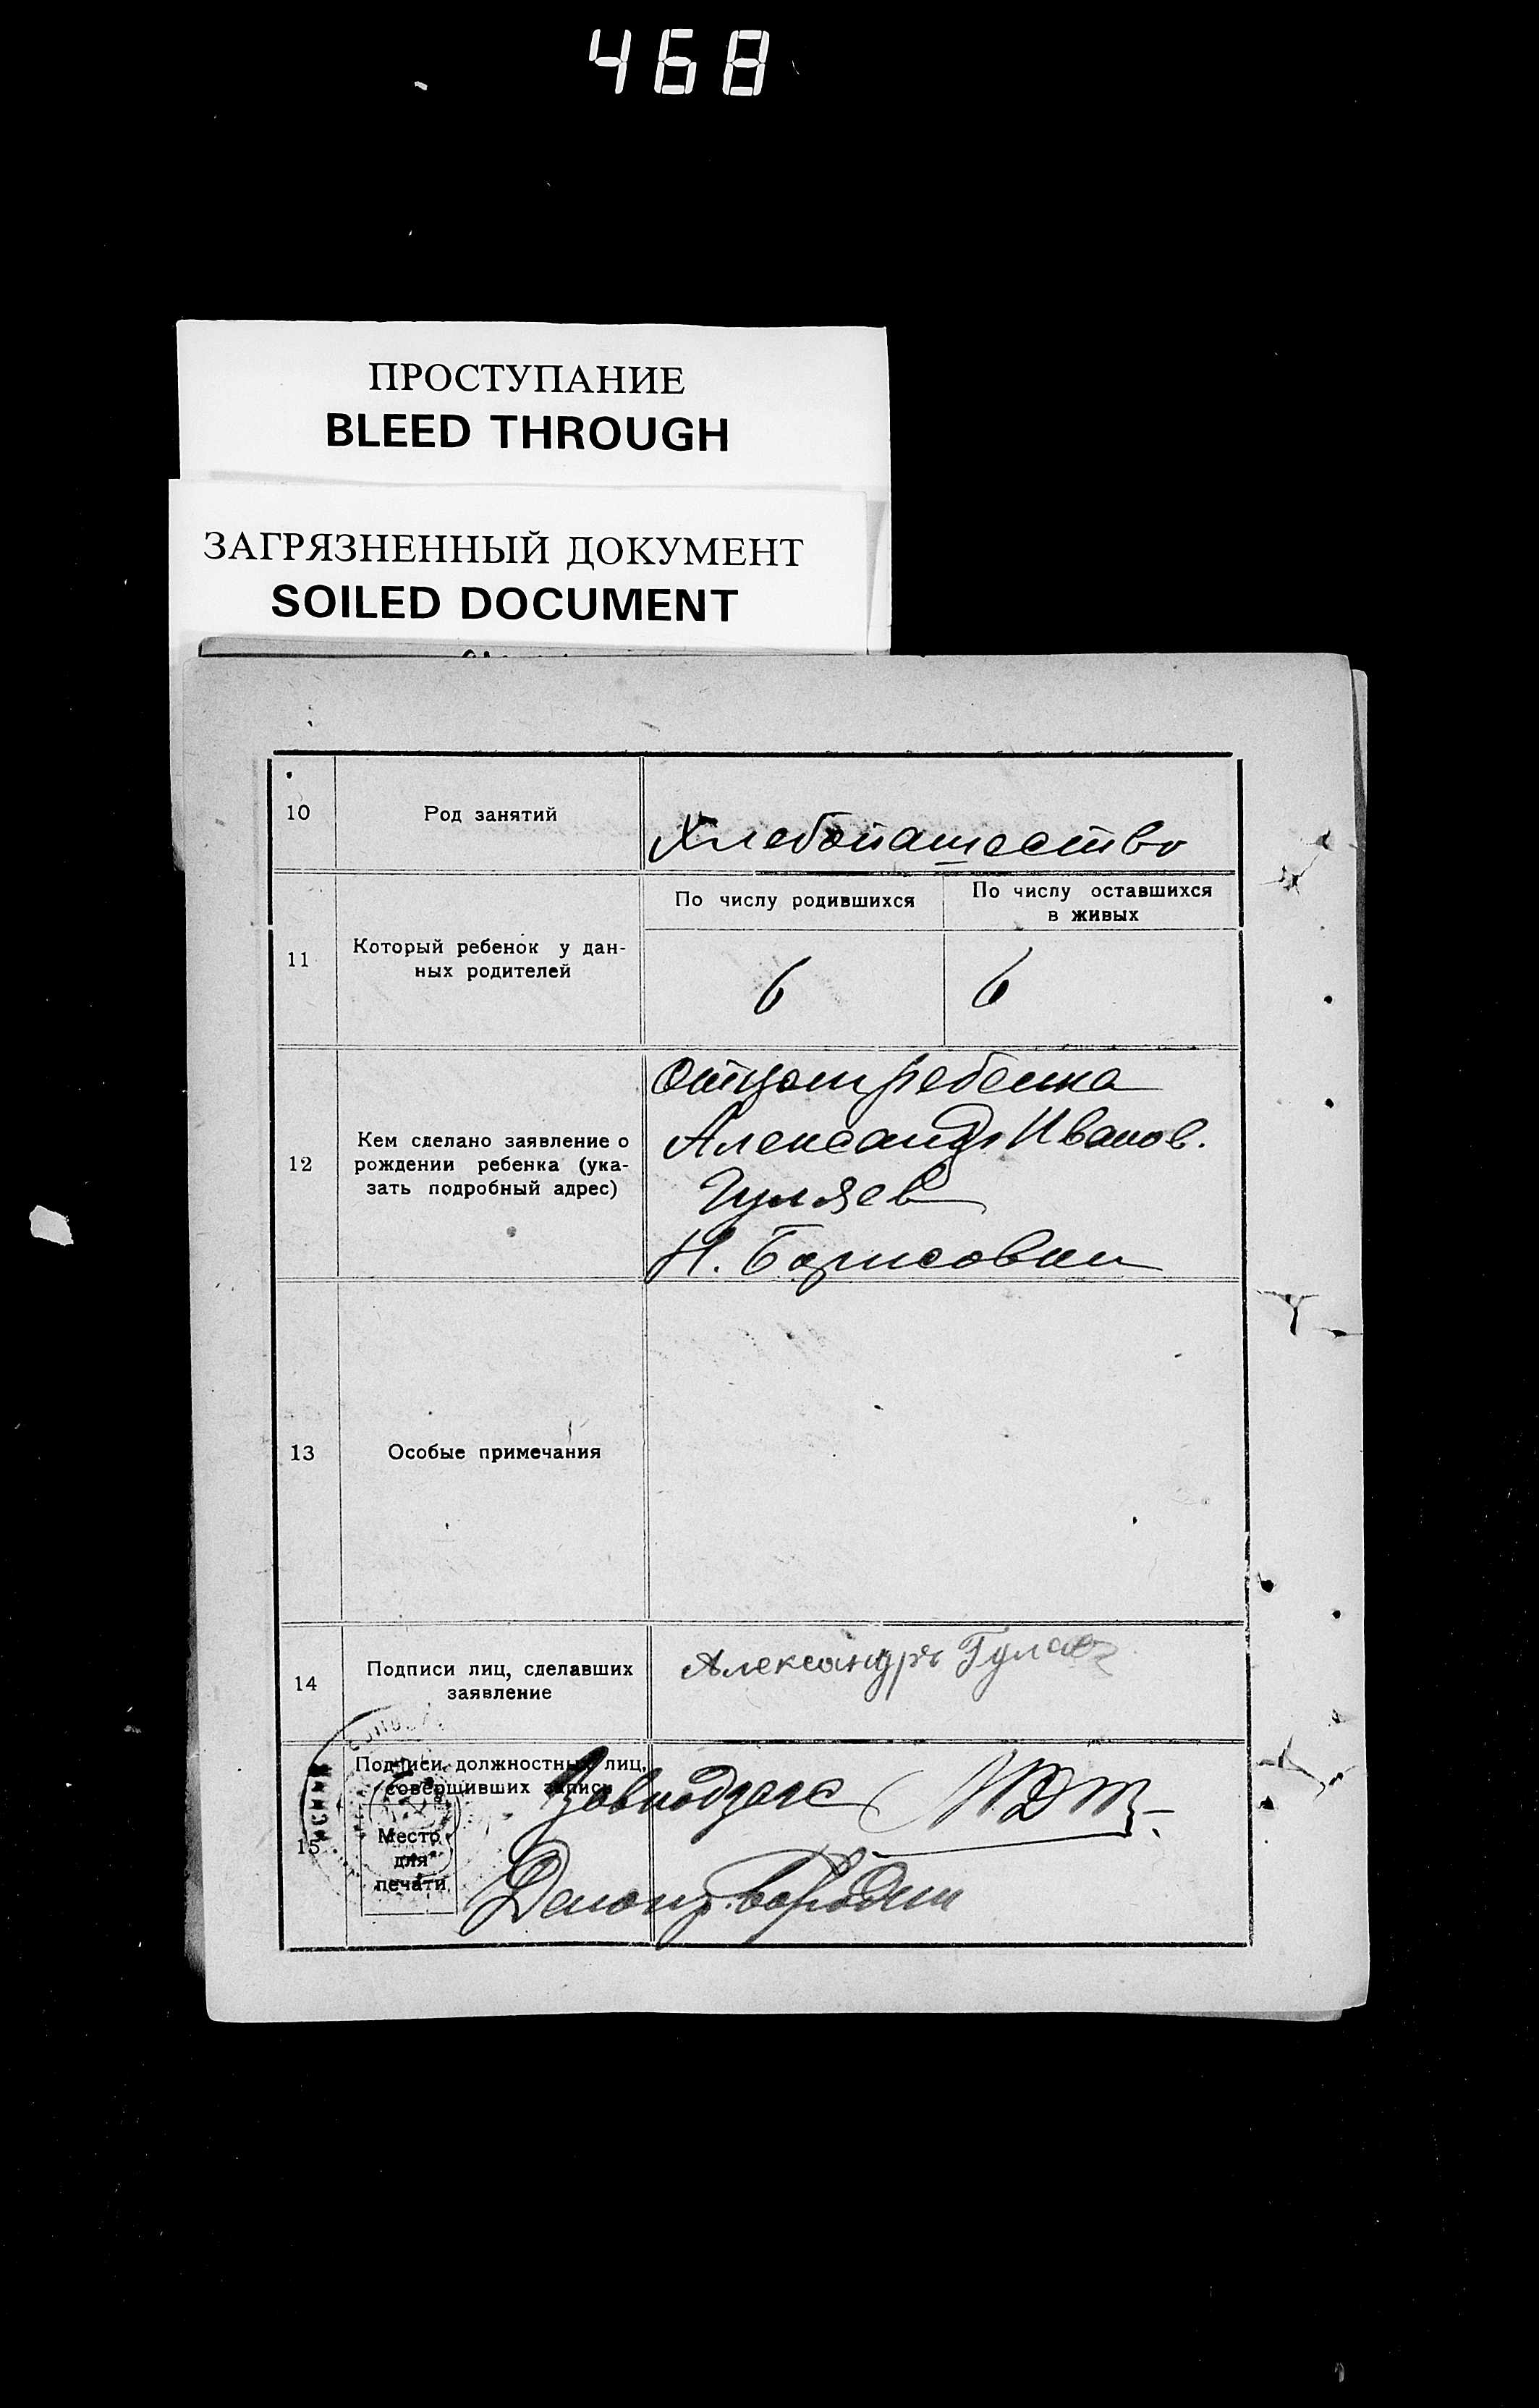 468
ПРОСТУПАНИЕ
BLEED THROUGH
ЗАГРЯЗНЕННЫЙ ДОКУМЕНТ
SOILED DOCUMENT
10
Род занятий
Хлебопашество
11
Который ребенок у дан-
ных родителей
По числу родившихся
По числу оставшихся
в живых
6
6
12
Кем сделано заявление о
рождении ребенка (ука-
зать подробный адрес)
Отцом ребенка
Александр Иванов.
Гуляев
Н. Борисовки
13
Особые примечания
14
Подписи лиц, сделавших
заявление
Александръ Гулаев
15
Подписи должностных лиц,
совершивших запись
Место
для
печати
Завподзагс
Делопр. Бородин